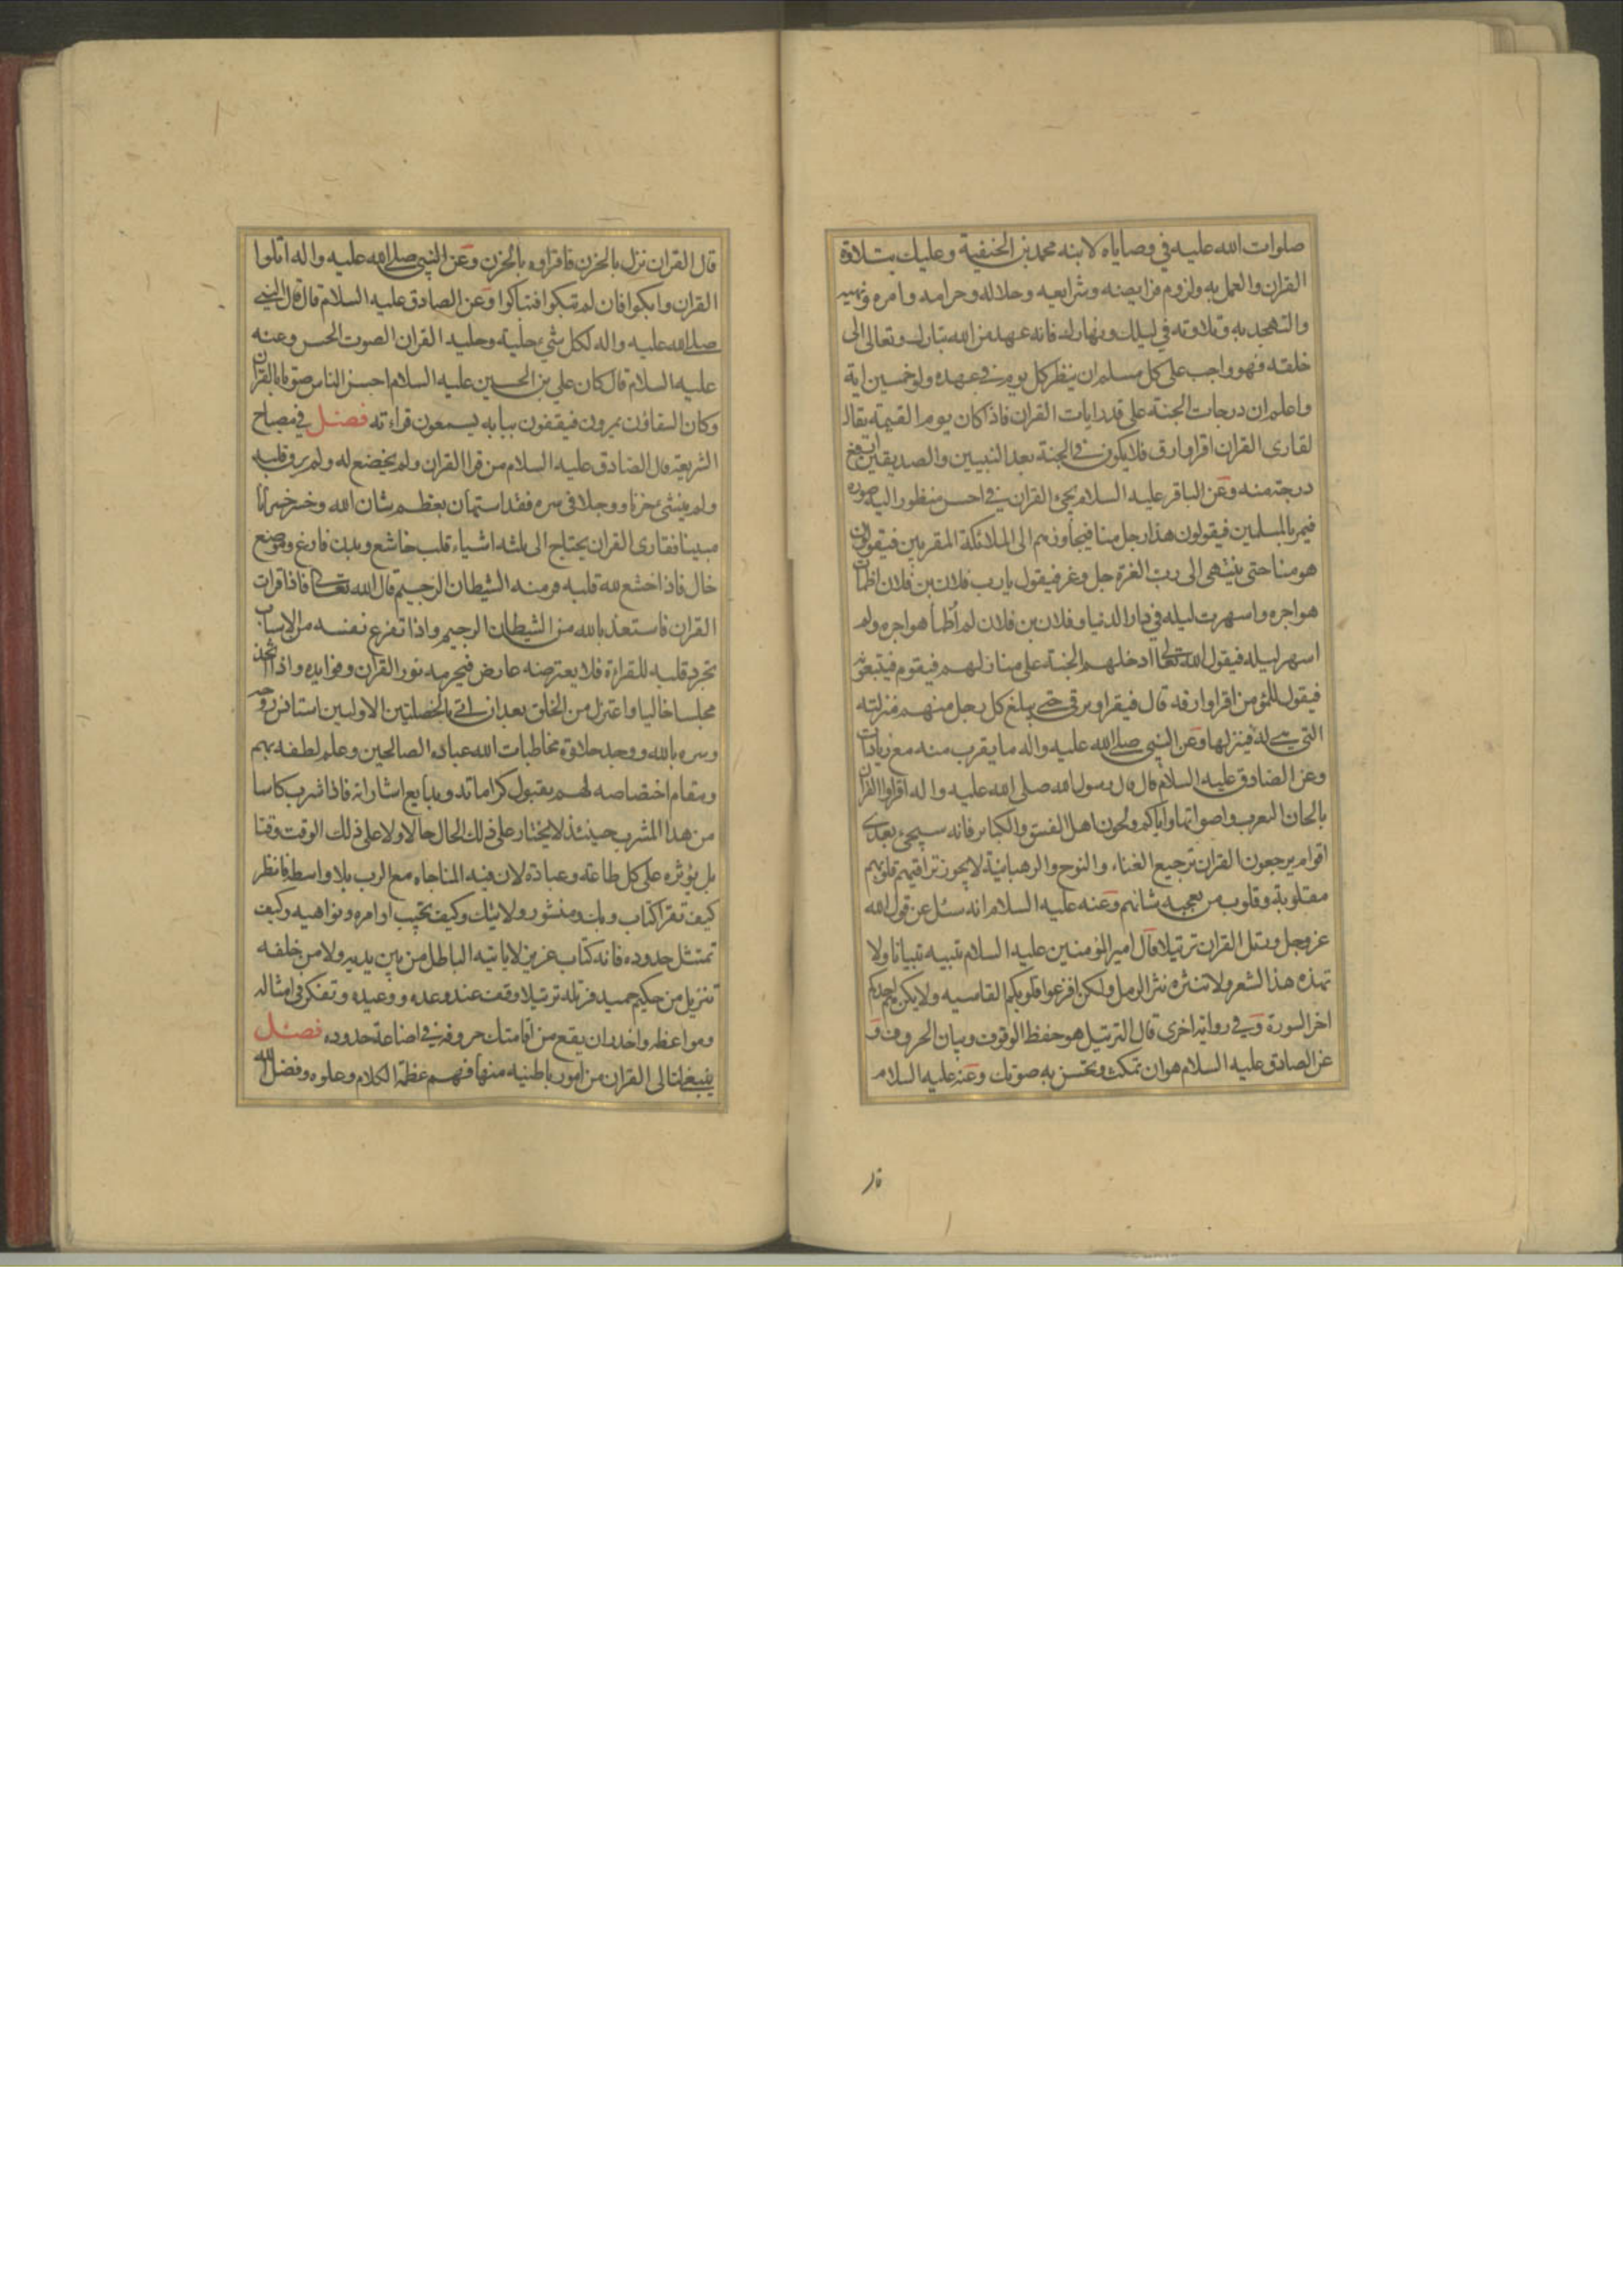 صلوات الله عليه في وصاياه لابنه محمد بن الحنفية وعليك بتلاوة
القران والعمل به ولزوم فرايضه وشرايعه وحلاله وحرامه وامره ونهيه
والتهجد به وتلاوته في ليلك ونهارك فانه عهد من الله تبارك وتعالى الى
خلقه فهو واجب على كل مسلم ان ينظر كل يوم في عهده ولو خمسين اية
واعلم ان درجات الجنة على قدر ايات القران فاذا كان يوم القيمة يقال
لقارى القران اقرا وارق فلا يكون في الجنة بعد النبيين والصديقين ارفع
درجة منه وعن الباقر عليه السلام يجيء القران في احسن منظور اليه صورة
فيمر بالمسلمين فيقولون هذا رجل منا فيجاوزهم الى الملائكة المقربين فيقولون
هو منا حتى ينتهى الى رب العزة جل وعز فيقول يا رب فلان بن فلان اظمات
هواجره واسهرت ليله في دار الدنيا وفلان بن فلان لم اظمأ هواجره ولم
اسهر ليله فيقول الله تعالى ادخلهم الجنة على منازلهم فيقوم فيتبعونه
فيقول للمؤمن اقرا وارقه قال فيقرا ويرقى حتى يبلغ كل رجل منهم منزلته
التي هي له فينزلها وعن النبي صلى الله عليه واله ما يقرب منه مع زيادات
وعن الصادق عليه السلام قال قال رسول الله صلى الله عليه واله اقراوا القران
بالحان العرب واصواتها واياكم ولحون اهل الفسق والكبائر فانه سيجيء بعدي
اقوام يرجعون القران ترجيع الغناء والنوح والرهبانية لا يجوز تراقيهم قلوبهم
مقلوبة وقلوب من يعجبه شانهم وعنه عليه السلام انه سئل عن قول الله
عز وجل ورتل القران ترتيلا قال امير المؤمنين عليه السلام تبيه تبيانا ولا
تهذه هذ الشعر ولا تنثره نثر الرمل ولكن افزعوا قلوبكم القاسيه ولا يكن هم احدكم
اخر السورة وفي رواية اخرى قال الترتيل هو حفظ الوقوف وبيان الحروف و
عن الصادق عليه السلام هو ان تمكث وتحسن به صوتك وعنه عليه السلام
قال القران نزل بالحزن فاقراوه بالحزن وعن النبي صلى الله عليه واله اتلوا
القران وابكوا فان لم تبكوا فتباكوا وعن الصادق عليه السلام قال قال النبي
صلى الله عليه واله لكل شيء حلية وحلية القران الصوت الحسن وعنه
عليه السلام قال كان علي بن الحسين عليه السلام احسن الناس صوتا بالقران
وكان السقاؤن يمرون فيقفون ببابه يسمعون قراءته فصل في مصباح
الشريعة قال الصادق عليه السلام من قرا القران ولم يخضع له ولم يرق قلبه
ولم ينشئ حزنا ووجلا في سره فقد استهان بعظم شان الله وخسر خسرانا
مبينا فقارى القران يحتاج الى ثلثه اشياء قلب خاشع وبدن فارغ وموضع
خال فاذا خشع لله قلبه فر منه الشيطان الرجيم قال الله تعالى فاذا قرات
القران فاستعذ بالله من الشيطان الرجيم واذا تفرغ نفسه من الاسباب
تجرد قلبه للقراءة فلا يعترضه عارض فيحرمه نور القران وفوايده واذا اتخذ
مجلسا خاليا واعتزل من الخلق بعد ان اتى بالخصلتين الاوليين استانس روحه
وسره بالله ووجد حلاوة مخاطبات الله عباده الصالحين وعلم لطفه بهم
ومقام اختصاصه لهم بقبول كراماته وبدايع اشاراته فاذا شرب كاسا
من هذا المشرب حينئذ لا يختار على ذلك الحال حالا ولا على ذلك الوقت وقتا
بل يؤثره على كل طاعة وعبادة لان فيه المناجاه مع الرب بلا واسطه فانظر
كيف تقرا كتاب ربك ومنشور ولايتك وكيف تجيب اوامره ونواهيه وكيف
تمتثل حدوده فانه كتاب عزيز لا ياتيه الباطل من بين يديه ولا من خلفه
تنزيل من حكيم حميد فرتله ترتيلا وقف عند وعده ووعيده وتفكر في امثاله
ومواعظه واحذر ان يقع من اقامتك حروفه في اضاعة حدوده فصل
ينبغي لتالى القران من امور باطنيه منها فهم عظمة الكلام وعلوه وفضل الله
قال